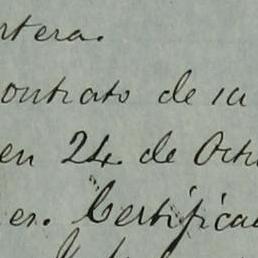 rtera.
ontrato de ia
en 24. de Octu
es. Certifica